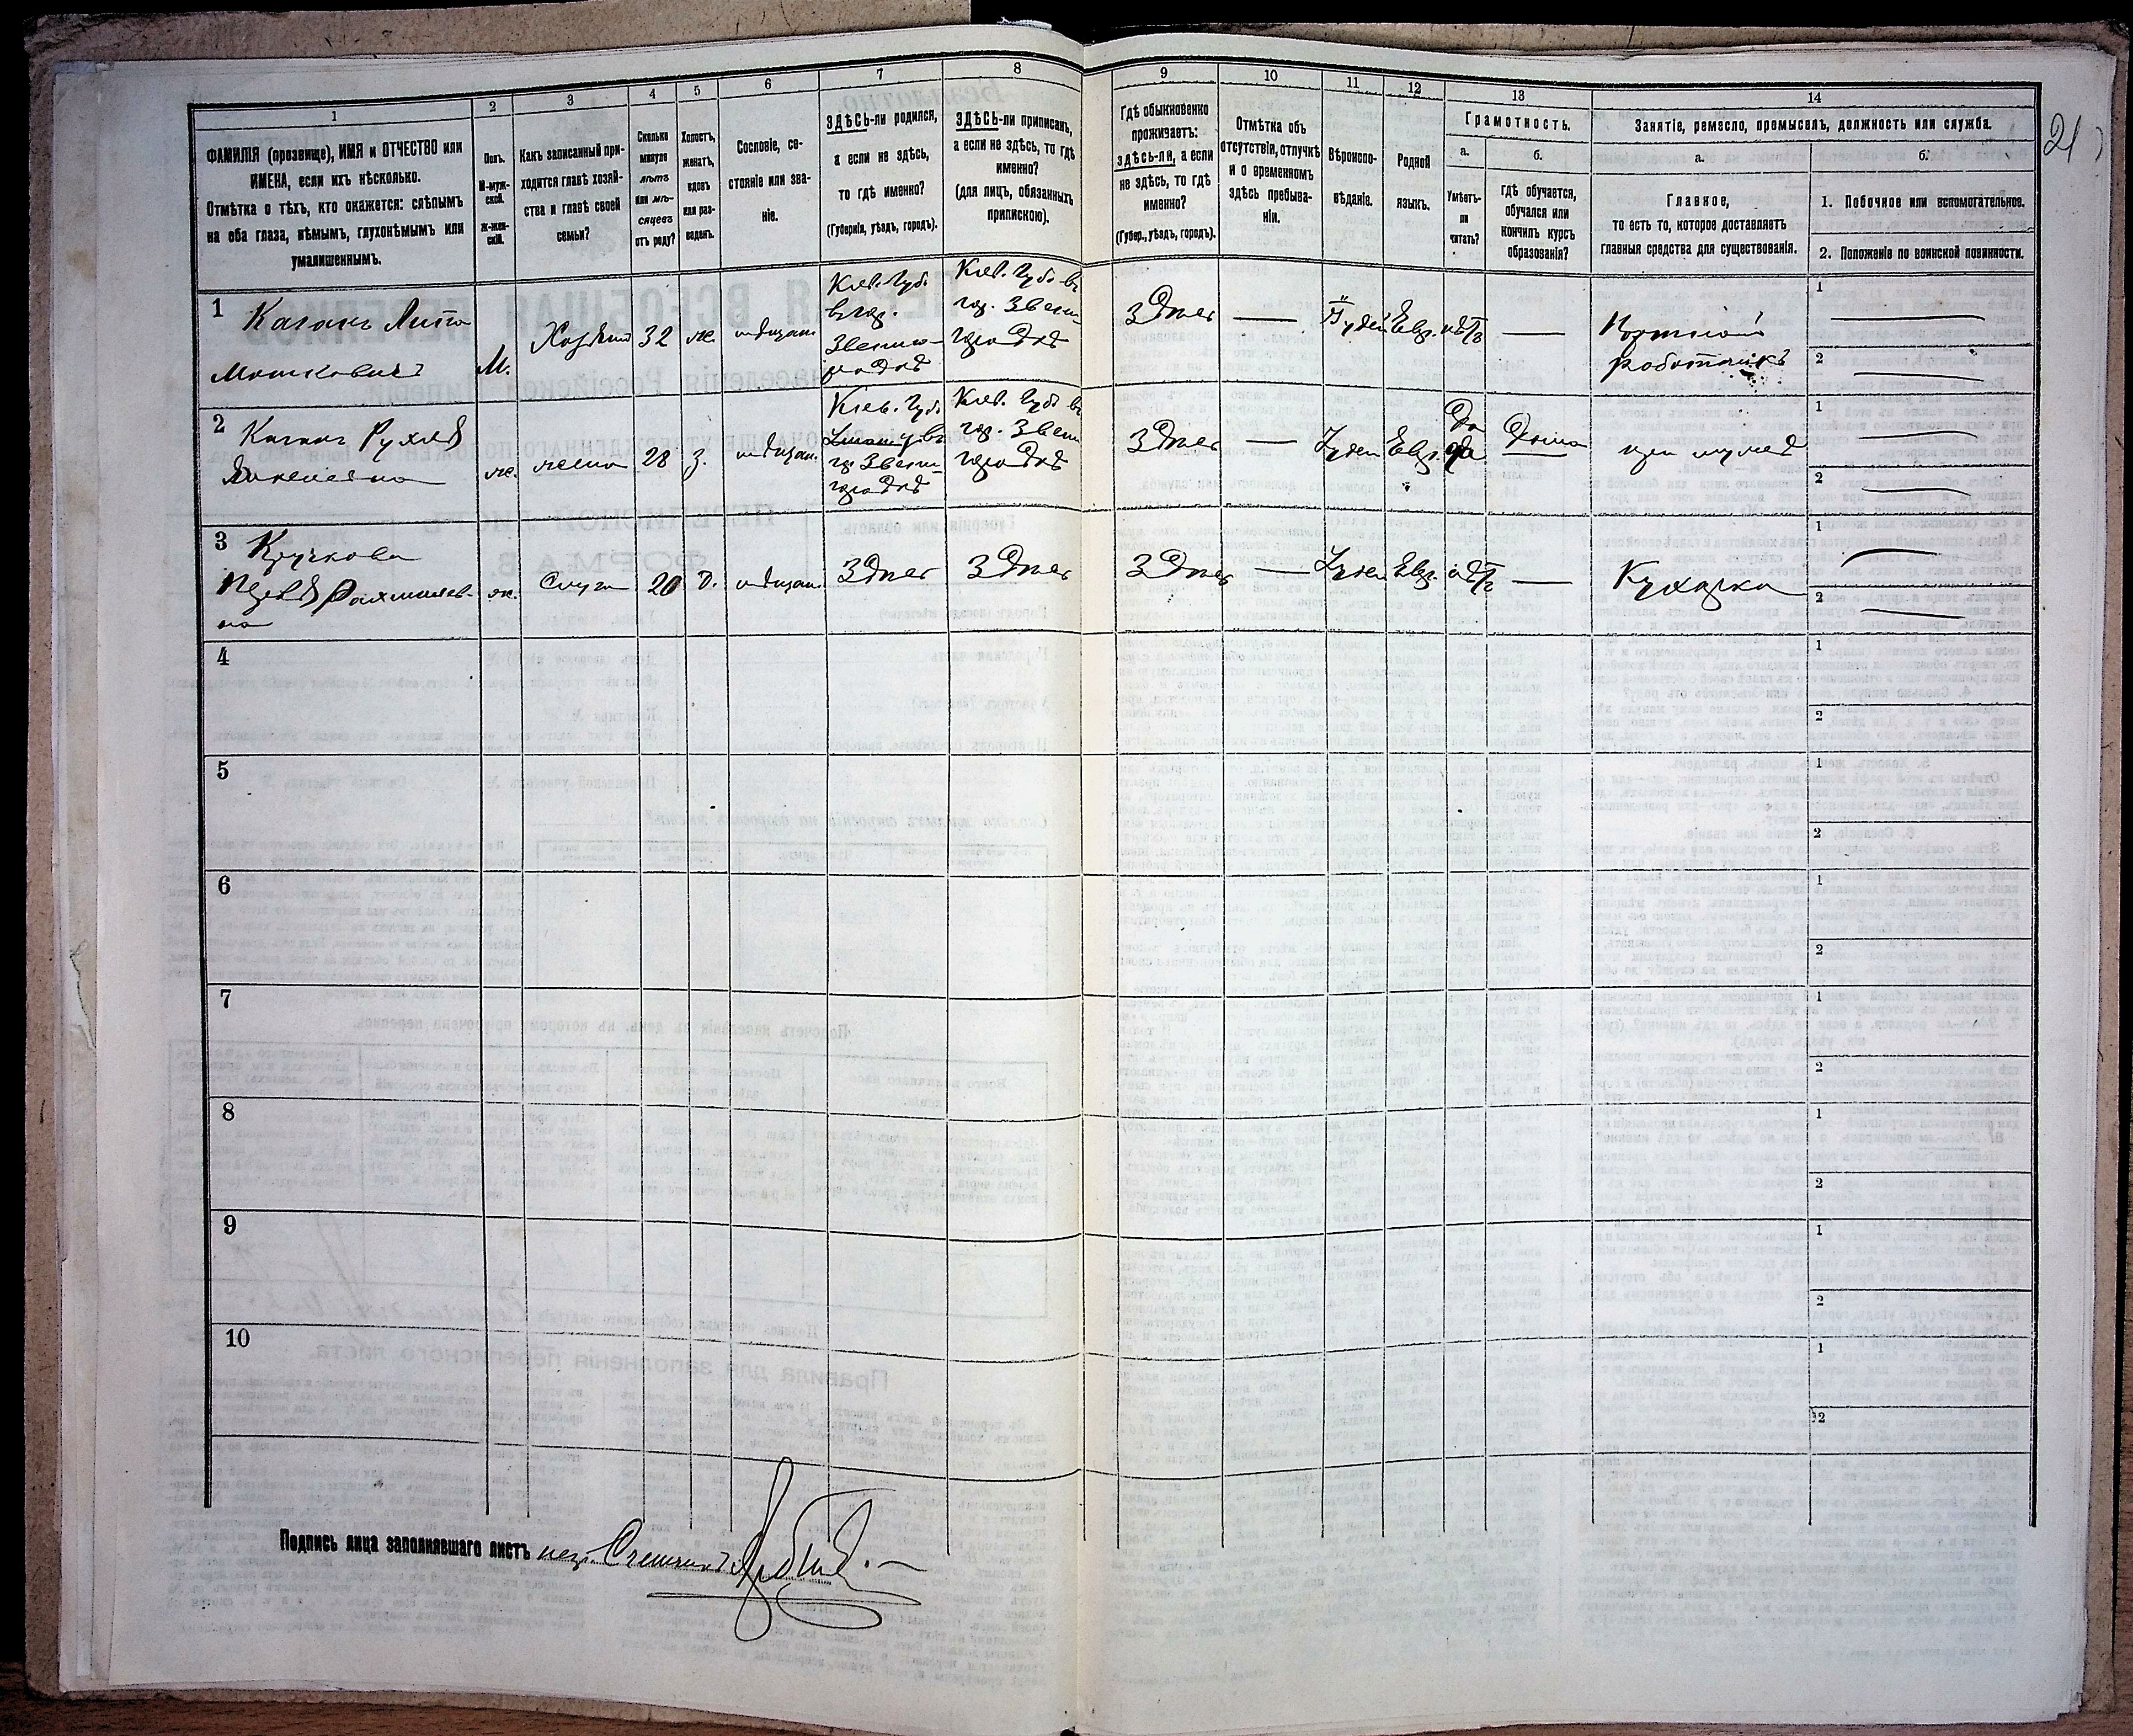 1
2
3
4
5
6
7
8
9
10
11
12
13
14
ФАМИЛІЯ (прозвище), ИМЯ и ОТЧЕСТВО или
ИМЕНА, если ихъ нѣсколько.
Отмѣтка о тѣхъ, кто окажется: слѣпымъ
на оба глаза, нѣмымъ, глухонѣмымъ или
умалишеннымъ.
Полъ.
М-муж-
ской.
Ж-жен-
скій.
Какъ записанный при-
ходится главѣ хозяй-
ства и главѣ своей
семьи?
Сколько
минуло
лѣтъ
или мѣ-
сяцевъ
отъ роду?
Холостъ,
женатъ,
вдовъ
или раз-
веденъ.
Сословіе, со-
стояніе или зва-
ніе.
ЗДѢСЬ-ли родился,
а если не здѣсь,
то гдѣ именно?
(Губернія, уѣздъ, городъ).
ЗДѢСЬ-ли приписанъ,
а если не здѣсь, то гдѣ
именно?
(для лицъ, обязанныхъ
припискою).
Гдѣ обыкновенно
проживаетъ:
здѣсь-ли, а если
не здѣсь, то гдѣ
именно?
(Губер., уѣздъ, городъ).
Отмѣтка объ
отсутствіи, отлучкѣ
и о временномъ
здѣсь пребыва-
ніи.
Вѣроиспо-
вѣданіе.
Родной
языкъ.
Грамотность.
а.
Умѣетъ-
ли
читать?
б.
гдѣ обучается,
обучался или
кончилъ курсъ
образованія?
Занятіе, ремесло, промыселъ, должность или служба.
а.
Главное,
то есть то, которое доставляетъ
главныя средства для существованія.
б.
1. Побочное или вспомогательное.
2. Положеніе по воинской повинности.
21
1
Каганъ Липа
Мошковичъ
М.
Хозяинъ
32
ж.
мѣщан.
Кіев. Губ.
въ гор.
Звени-
городкѣ
Кіев. Губ. въ
гор. Звени
городкѣ
Здѣсь
Іудей
Евр.
нѣтъ
Портной
работникъ
1
2
2
Каганъ Рухля
ж.
жена
28
з.
мѣщан.
Кіев. Губ.
въ
гор. Звени
городкѣ
Кіев. Губ. въ
гор. Звени
городкѣ
Здѣсь
Іудей
Евр.
Да
да
Дома
при мужѣ
1
2
3
Кручкова
Рахмилев-
на
ж.
Слуга
20
д.
мѣщан.
Здѣсь
Здѣсь
Здѣсь
Іудей
Евр.
нѣтъ
Кухарка
1
2
4
1
2
5
1
2
6
1
2
7
1
2
8
1
2
9
1
2
10
1
2
Подпись лица заполнявшаго листъ пер. Счетчикъ